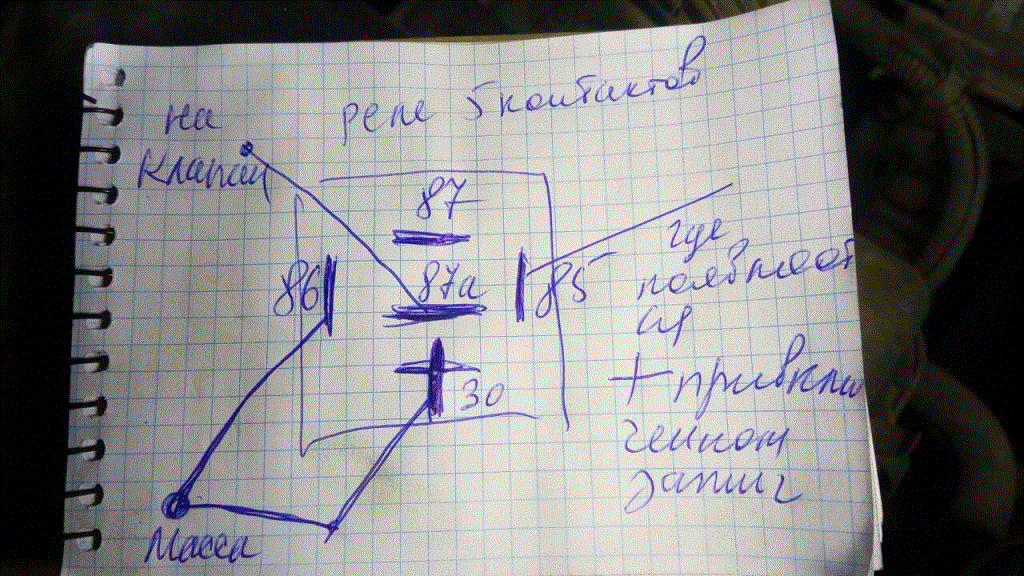 на
клапан
реле 5 контактов
87
86
87а
85
30
где
появляет
ся
+ при вклю
ченном
зажиг
Масса